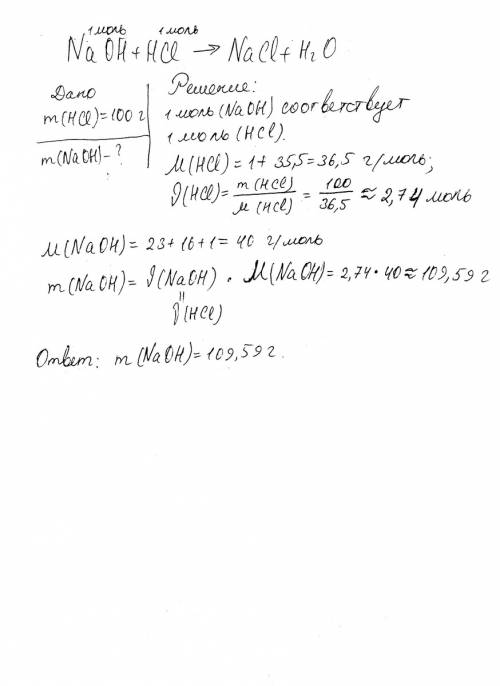 1 моль 1 моль
NaOH + HCl → NaCl + H₂O
Дано
m(HCl)=100 г
m(NaOH)-?
Решение:
1 моль (NaOH) соответствует
1 моль (HCl).
M(HCl) = 1 + 35,5 = 36,5 г/моль;
ν(HCl) = m(HCl)/M(HCl) = 100/36,5 ≈ 2,74 моль
M(NaOH) = 23 + 16 + 1 = 40 г/моль
m(NaOH) = ν(NaOH) · M(NaOH) = 2,74 · 40 ≈ 109,59 г
"
ν(HCl)
Ответ: m(NaOH) = 109,59 г.